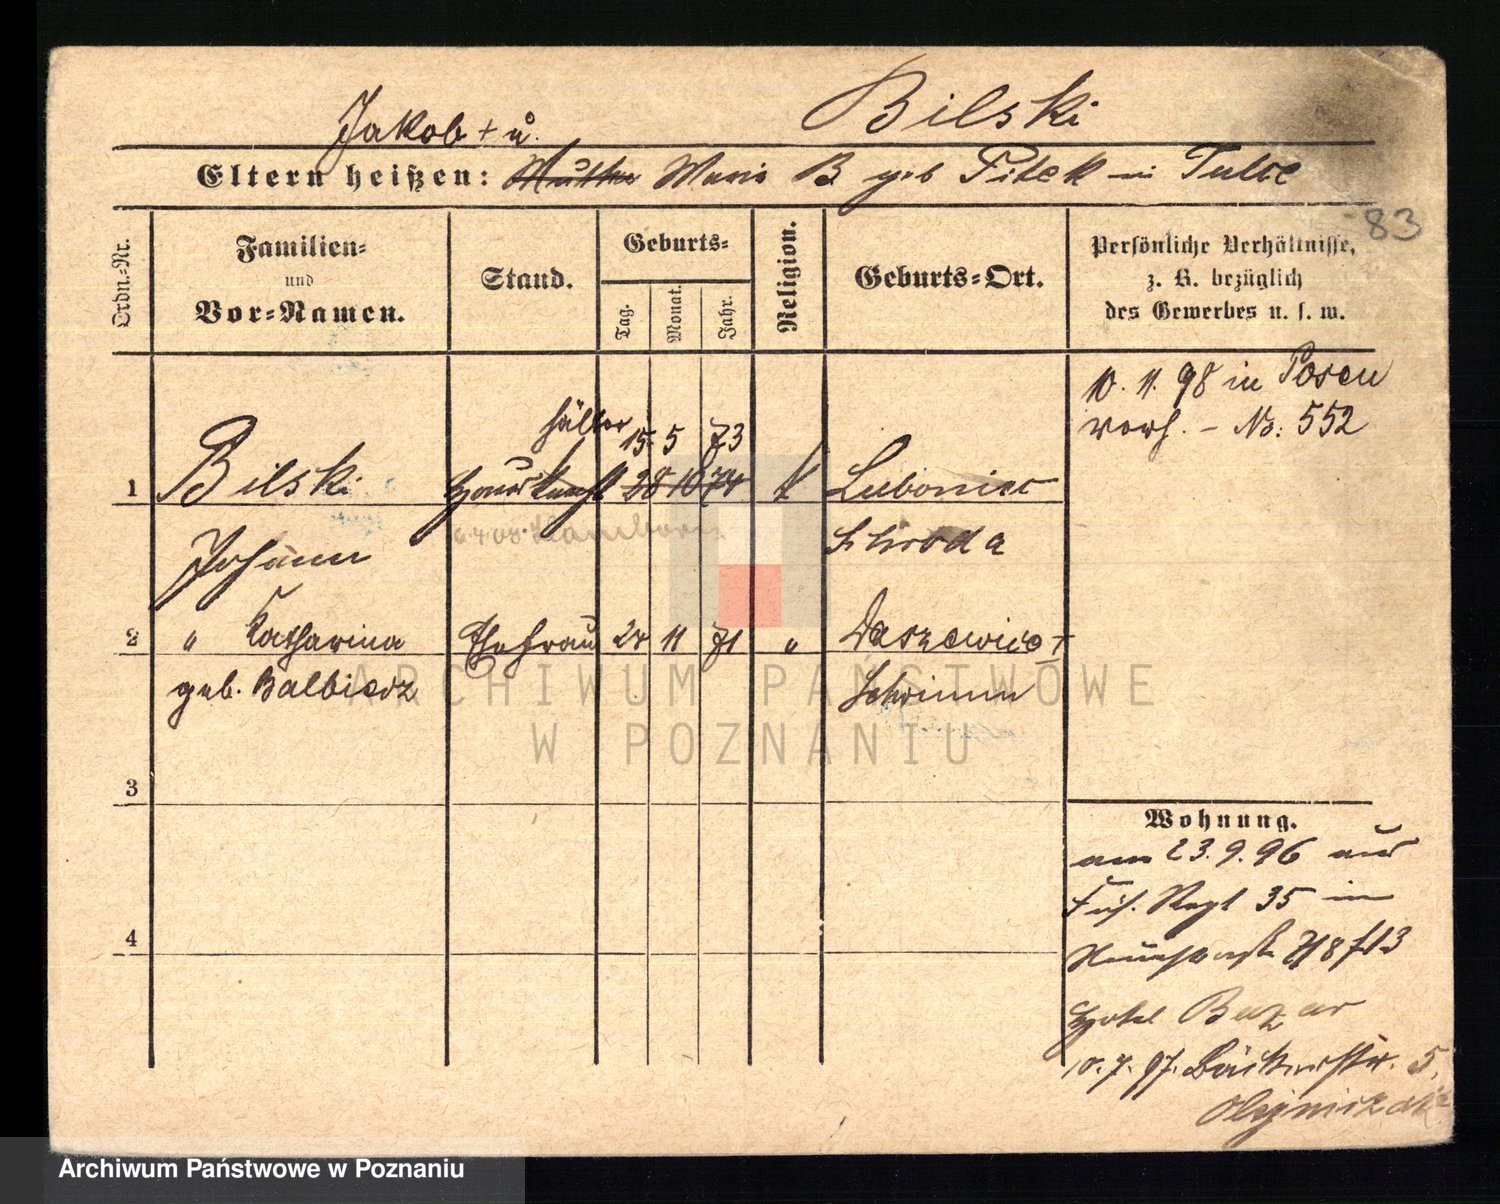 Bilski
Jakob + u.
Eltern heißen: Mutter Maria B. geb Pitek in Tulce
83
Ordn.-Nr.
Familien-
und
Vor-Namen.
Stand.
Geburts-
Tag.
Monat.
Jahr.
Religion.
Geburts-Ort.
Persönliche Verhältnisse,
z. B. bezüglich
des Gewerbes u. s. w.
10. 11. 98 in Posen
verh. - No: 552
hälter
15. 5 73
1 Bilski Hausknecht 28 10 74 k Luboniec
Johann
Schroda
2 " Katharina Ehefrau 24 11 71 " Daszewice
geb. Balbierz
Schrimm
3
4
Wohnung.
am 23. 9. 96 aus
Füs. Regt 35 in
Hotel Bazar
10. 7. 97. Bäckerstr. 5,
ARCHIWUM PAŃSTWOWE
W POZNANIU
Archiwum Państwowe w Poznaniu